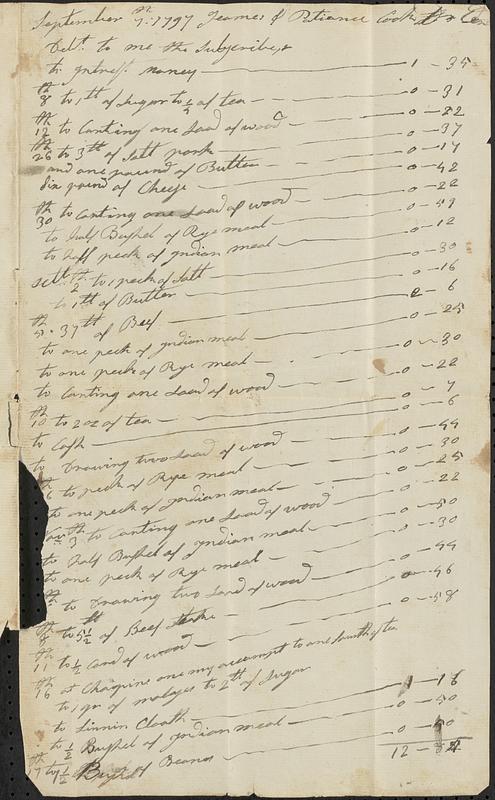 September th 7: 1797 Jeames & Patiance Cook Dr
Debt. to me the Subscriber
to Intrest money 1 - 35
th 8 to 1 lb of Sugar to ¼ of tea 0 - 31
th 12 to Carting one Load of wood 0 - 22
th 26 to 3 lb of Salt pork 0 - 37
and one pound of Butter 0 - 17
Six pound of Cheese 0 - 42
th 30 to Carting one Load of wood 0 - 22
to half Bushel of Rye meal 0 - 49
to half peck of Indian meal 0 - 12
oct. th 2 to 1 peck of Salt 0 - 30
to 1 lb of Butter 0 - 16
th 5 - 37 lb of Beef 2 - 6
to one peck of Indian meal 0 - 25
to one peck of Rye meal 0 - 30
to Carting one Load of wood 0 - 22
th 10 to 2 oz of tea 0 - 7
to Cash 0 - 6
to Drawing two Load of wood 0 - 44
to peck of Rye meal 0 - 30
to one peck of Indian meal 0 - 25
th 3 to Carting one Load of wood 0 - 22
to half Bushel of Indian meal 0 - 50
to one peck of Rye meal 0 - 30
th to Drawing two Load of wood 0 - 44
th 8 to 5½ lb of Beef 0 - 46
th 11 to ½ Cord of wood 0 - 58
th 16 at Chaquine one my accompt to one fourth of tea
to 1 qr of malases to 2 lb of Sugar
to Linnin Cloath 1 - 18
to ½ Bushel of Indian meal 0 - 50
th 17 to ½ Bushel of Beans 0 - 50
12 -